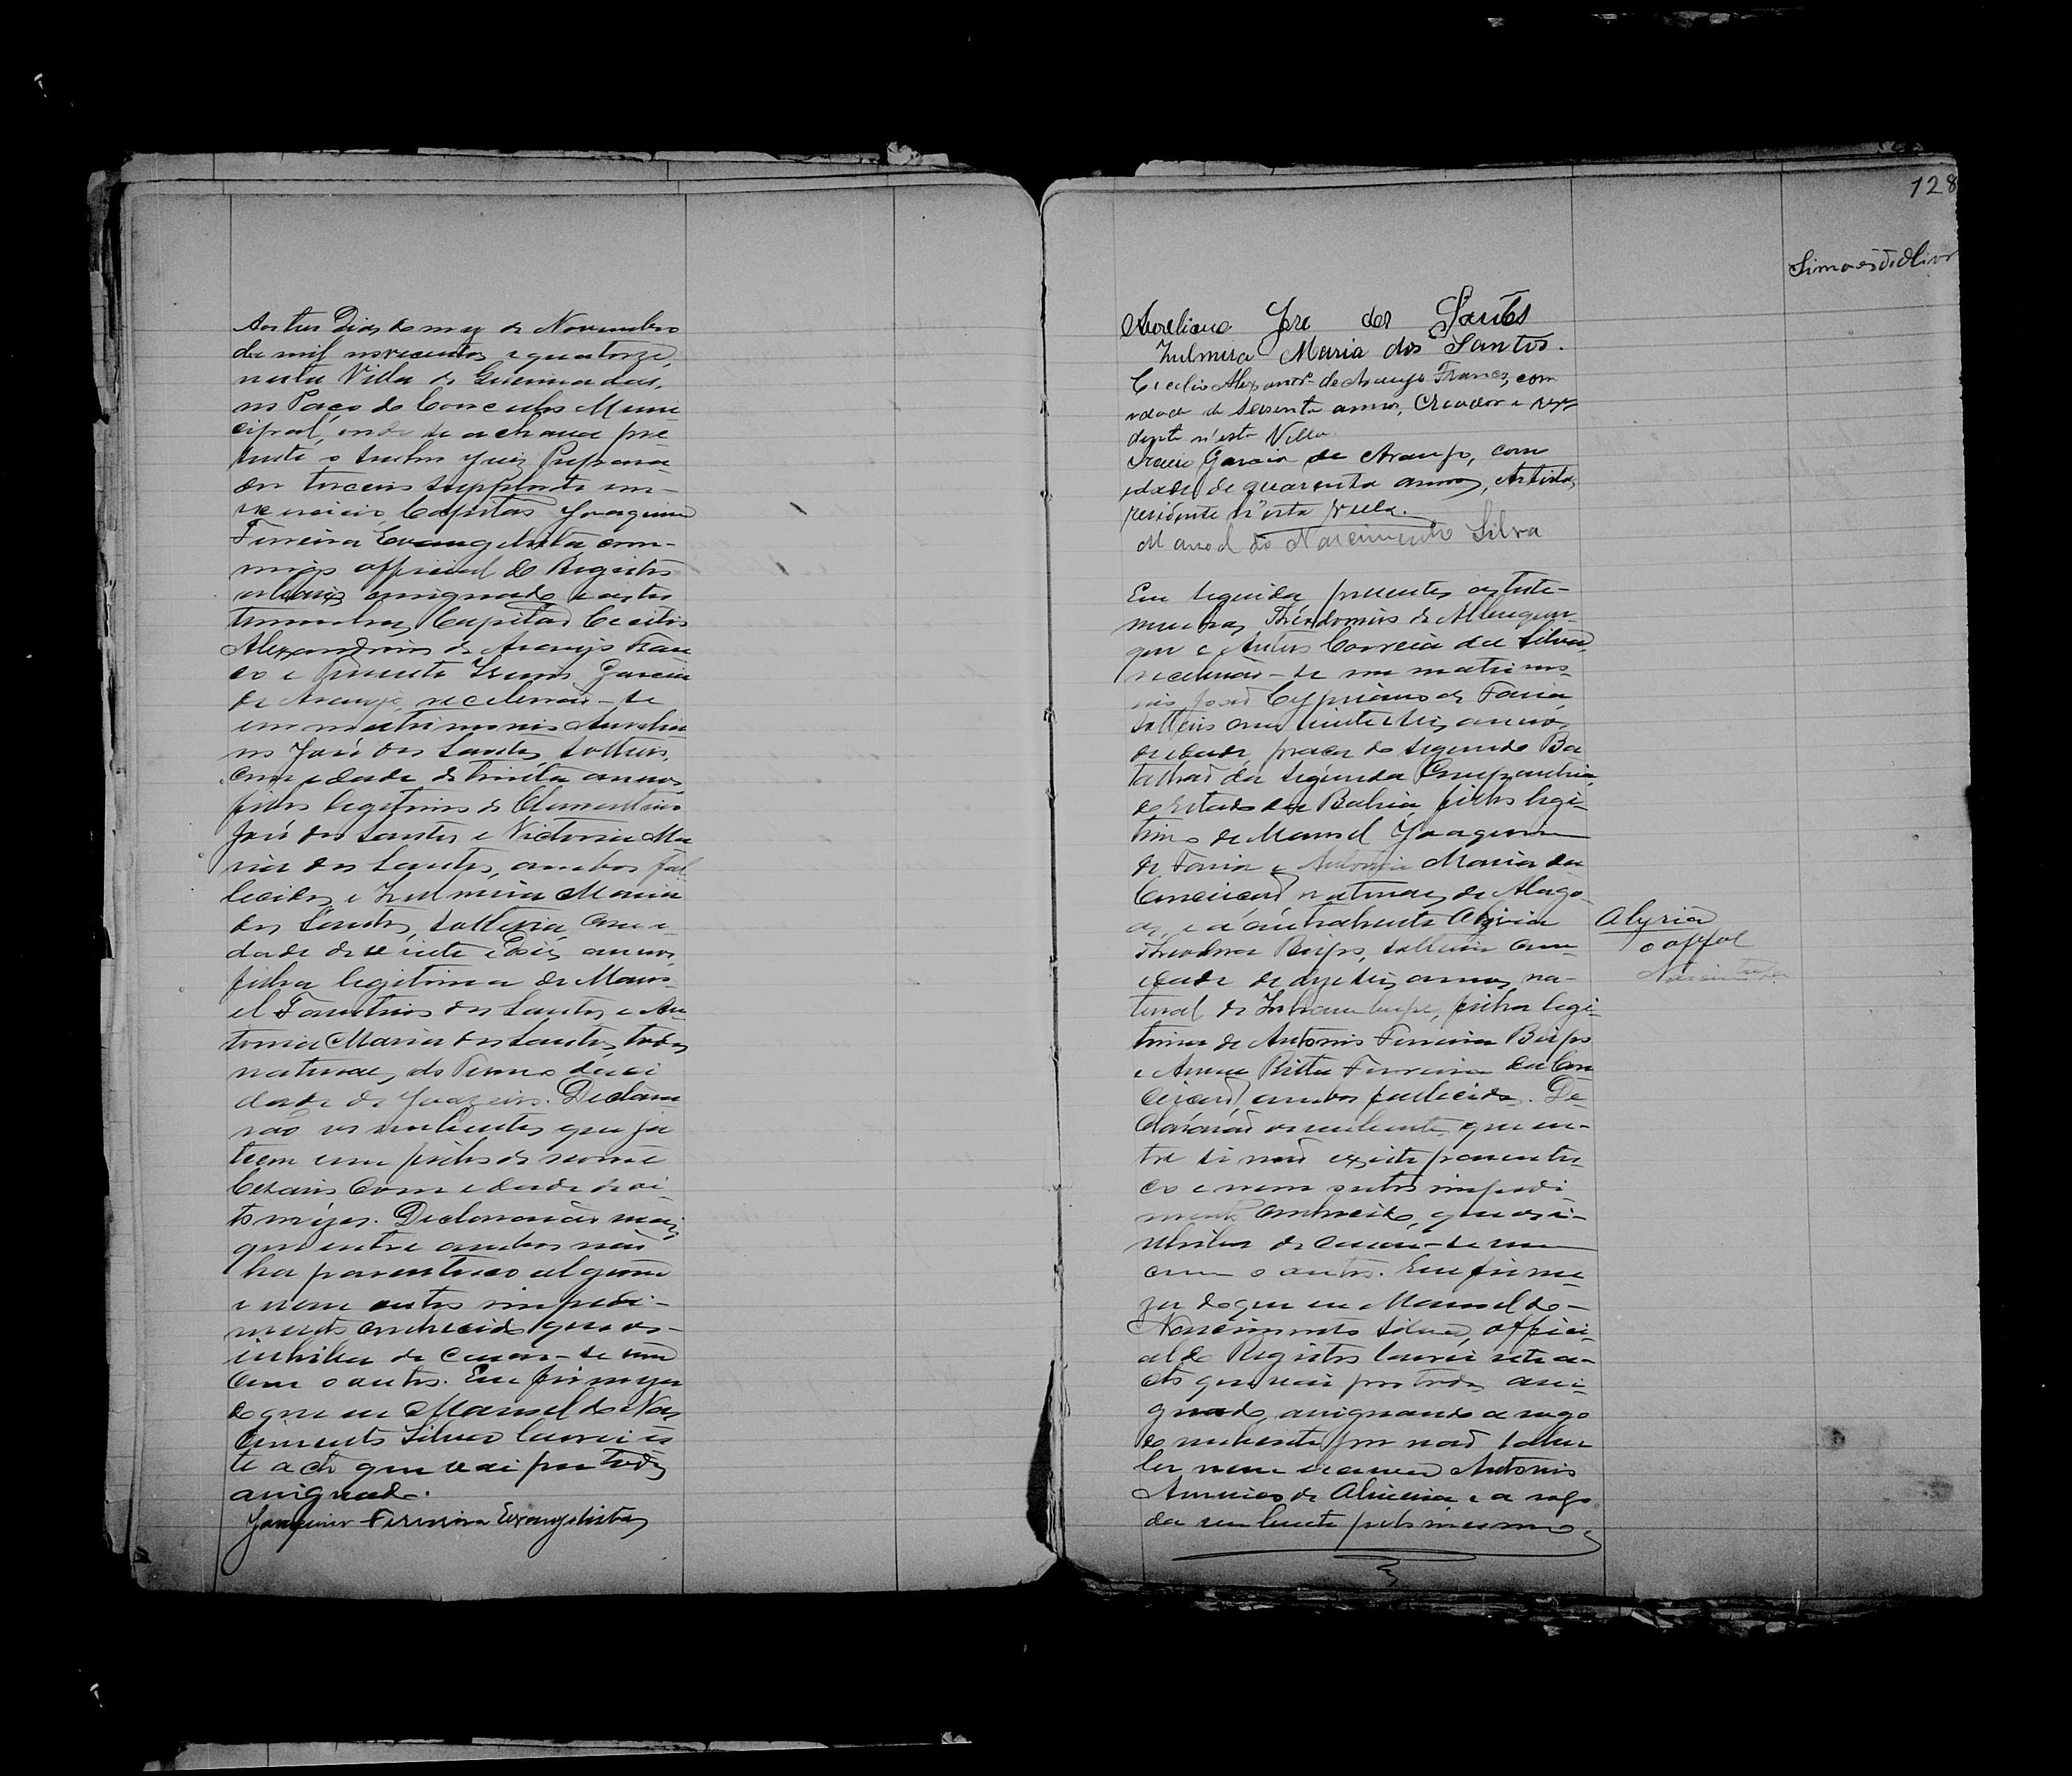 Aos tres dias do mez de Novembro
de mil novecentos e quatorze,
nesta Villa de Queimadas,
no Paço do Concelho Muni
cipal, onde se achava pre
sente o senhor Juiz Prepara
dor terceiro supplente em
exercicio Capitão Joaquim
Ferreira Evangelista com-
migo official do Registro
abaixo assignado e as tes
temunhas Capitão Cecilio
Alexandrino de Araujo Fran
co e Garcia
de Araujo, receberão-se
em matrimonio Aurelia
no José dos Santos, solteiro,
com edade de trinta annos,
filho legitimo de Clementino
José dos Santos e Victoria Ma
ria dos Santos, ambos fal
lecidos, e Zulmira Maria
dos Santos, solteira, com e-
dade de vinte e annos,
filha legitima de Mano-
el Faustino dos Santos e An
tonia Maria dos Santos, todos
naturaes do Termo da ci
dade de Joazeiro. Declara
rão os nubentes que ja
teem um filho de nome
Cezario com edade de oi-
to mezes. Declararão mais
que entre ambos não
ha parentesco algum
e nem outro impedi-
mento conhecido que os
inhiba de casar-se um
com o outro. Em firmeza
do que eu Manoel do Nas
cimento Silva lavrei es
te acto que vai por todos
assignado.
Joaquim Ferreira Evangelista
128
Simões d'Oliv
Aureliano José dos Santos
Zulmira Maria dos Santos.
Cecilio Alexandr.º de Araujo Franco, com
edade de sesenta annos, Creador e rezi
dente n'esta Villa.
Garcia de Araujo, com
edade de quarenta annos, Artista,
residente n'esta villa.
Manoel do Nascimento Silva
Em seguida presentes as teste-
munhas, Theodomiro de Albuquer-
que e Antero Correia da Silva,
receberão-se em matrimo-
nio José Cypriano de Faria,
solteiro com vinte e seis annos
de edade, praça do segundo Ba
talhão da segunda Companhia
do Estado da Bahia, filho legi-
timo de Manoel Joaquim
de Faria e Antonia Maria da
Conceição, naturaes de Alago
as, e a contrahente Alzira
Theodora Bispo, solteira com
edade de dezeseis annos, na-
tural de Inhambupe, filha legi-
tima de Antonio Ferreira Bispo
e Anna Ritta Ferreira da Con
ceição, ambos fallecidos. De-
clararão os nubentes que en-
tre si não existe parentes-
co e nem outro impedi-
mento conhecido, que os i-
nhiba de casar-se um
com o outro. Em firme
za do que eu Manoel do
Nascimento Silva, offici-
al do Registro lavrei este a-
cto que vai por todos assi-
gnado, assignando a rogo
do nubente por não saber
ler nem escrever Antonio
de Oliveira e a rogo
da nubente pelo mesmo
Alyria
o offal